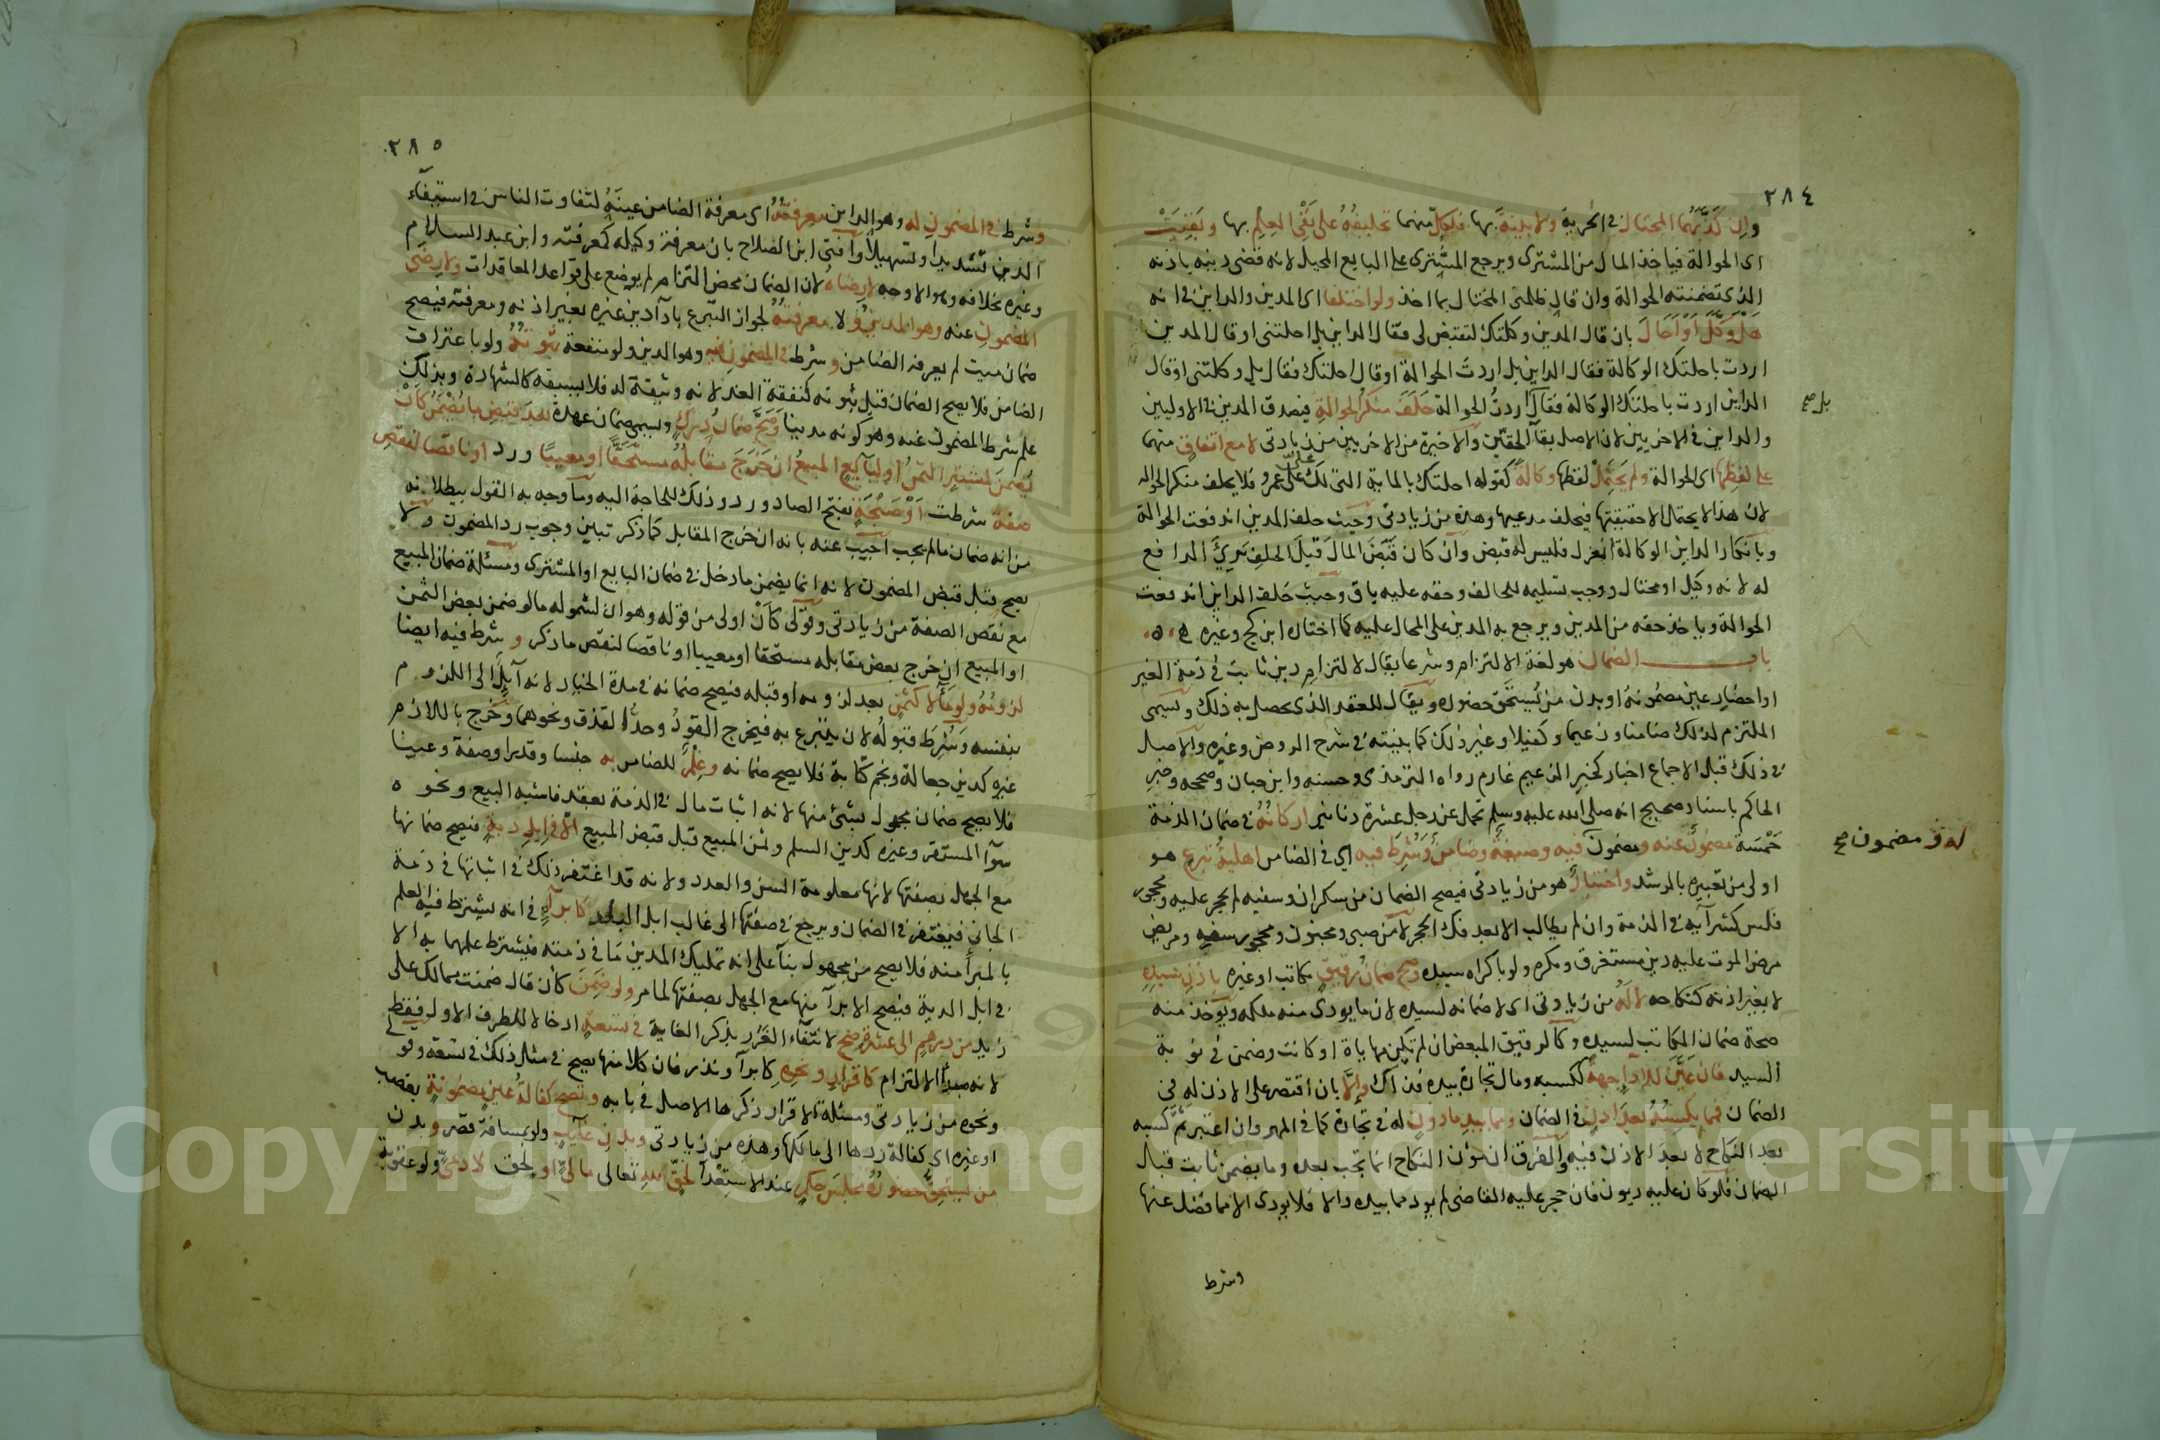 ٢٨٤
وإن كذبهما المحتال في الحرية ولا بينة بها فلكل منهما تحليفه على نفي العلم بها وبقيت
اى الحوالة فياخذ المال من المشترى ويرجع المشترى على البايع المحيل لانه قضى دينه باذنه
الذى تضمنته الحوالة وان قال ظلمنى المحتال بما اخذ ولو اختلفا اى المدين والداين في انه
هل وكل أو أحال بان قال المدين وكلتك لتقبض لى فقال الداين بل احلتنى او قال المدين
اردت باحلتك الوكالة فقال الداين بل اردت الحوالة او قال احلتك فقال بل وكلتنى او قال
الداين اردت باحلتك الوكالة فقال اردت الحوالة حلف منكر الحوالة فيصدق المدين في الاوليين
بل صح
والداين في الاخريين لان الاصل بقآ الحقين والاخيرة من الاخريين من زيادتى لا مع اتفاق منهما
على لفظها اى الحوالة ولم يحتمل لفظها وكالة كقوله احلتك بالماية التى لك على عمرو فلا يحلف منكر الحواله
لان هذا لا يحتمل الا حقيقتها فيحلف مدعيها وهذه من زيادتى وحيث حلف المدين اندفعت الحوالة
وبانكار الداين الوكالة انعزل فليس له قبض وان كان قبض المال قبل الحلف برئ الدافع
له لانه وكيل او محتال ووجب تسليمه للحالف وحقه عليه باق وحيث حلف الداين اندفعت
الحوالة وياخذ حقه من المدين ويرجع به المدين على المحال عليه كما اختاره ابن كج وغيره
باب الضمان هو لغة الالتزام وشرعا يقال لالتزام دين ثابت في ذمة الغير
او احضار عين مضمونة او بدن من يستحق حضوره ويقال للعقد الذى يحصل به ذلك ويسمى
الملتزم لذلك ضامنا وزعيما وكفيلا وغير ذلك كما بينته في شرح الروض وغيره والاصل
في ذلك قبل الاجماع اخبار كخبر الزعيم غارم رواه الترمذى وحسنه وابن حبان وصححه وخبر
الحاكم باسناد صحيح انه صلى الله عليه وسلم تحمل عن رجل عشرة دنانير اركانه في ضمان الذمة
خمسة مضمون عنه ومضمون فيه وصيغة وضامن وشرط فيه اي في الضامن اهلية تبرع هو
له ومضمون صح
اولى من تعبيره بالرشد واختيار هو من زيادتى فيصح الضمان من سكران وسفيه لم يحجر عليه ومحجور
فلس كشرآيه في الذمة وان لم يطالب الا بعد فك الحجر لا من صبى ومجنون ومحجور سفيه ومريض
مرض الموت عليه دين مستغرق ومكره ولو باكراه سيده وصح ضمان رقيق مكاتب او غيره باذن سيده
لا بغير اذنه كنكاحه لا له من زيادتى اى لا ضمانه لسيده لان ما يودى منه ملكه ويوخذ منه
صحة ضمان المكاتب لسيده وكالرقيق المبعض ان لم تكن مهاياة او كانت وضمن في نوبة
السيد فان عين للادآ جهة ككسبه ومال تجارة بيده فذاك والا بان اقتصر على الاذن له في
الضمان فمما يكسبه بعد اذن في الضمان ومما بيد ماذون له في تجارة كما في المهر وان اعتبر ثم كسبه
بعد النكاح لا بعد الاذن فيه والفرق ان مؤن النكاح انما تجب بعده وما يضمن ثابت قبل
الضمان فلو كان عليه ديون فان حجر عليه القاضى لم يود مما بيده والا فلا يودى الا مما فضل عنها
وشرط
٢٨٥
وشرط في المضمون له وهو الداين معرفته اى معرفة الضامن عينه لتفاوت الناس في استيفآء
الدين تشديدا وتسهيلا وافتى ابن الصلاح بان معرفة وكيله كمعرفته وابن عبد السلام
وغيره بخلافه وهو الاوجه لا رضاه لان الضمان محض التزام لم يوضع على قواعد المعاقدات ولا رضى
المضمون عنه وهو المدين ولا معرفته لجواز التبرع بادآ دين غيره بغير اذنه ومعرفته فيصح
ضمان ميت لم يعرفه الضامن وشرط في المضمون فيه وهو الدين ولو منفعة ثبوته ولو باعتراف
الضامن فلا يصح الضمان قبل ثبوته كنفقة الغد لانه وثيقة له فلا يسبقه كالشهادة وبذلك
علم شرط المضمون عنه وهو كونه مدينا وصح ضمان درك ويسمى ضمان عهدة بعد قبض ما يضمن كان
يضمن لمشتر الثمن او لبايع المبيع ان خرج مقابله مستحقا او معيبا ورد او ناقصا لنقص
صفة شرطت او صنجة بفتح الصاد ورد وذلك للحاجة اليه وما وجه به القول ببطلانه
من انه ضمان مالم يجب اجيب عنه بانه ان خرج المقابل كما ذكر تبين وجوب رد المضمون ولا
يصح قبل قبض المضمون لانه انما يضمن ما دخل في ضمان البايع او المشترى ومسئلة ضمان المبيع
مع نقص الصفة من زيادتى وقولى كان اولى من قوله وهو ان لشموله ما لو ضمن بعض الثمن
او المبيع ان خرج بعض مقابله مستحقا او معيبا او ناقصا لنقص ما ذكر وشرط فيه ايضا
لزومه ولو مآلا كثمن بعد لزومه او قبله فيصح ضمانه في مدة الخيار لانه آيل الى اللزوم
بنفسه وشرط قبوله لان يتبرع به فيخرج القود وحد القذف ونحوهما وخرج باللازم
غيره كدين جعالة ونجم كتابة فلا يصح ضمانه وعلم للضامن به جنسا وقدرا وصفة وعينا
فلا يصح ضمان مجهول بشئ منها لانه اثبات مال في الذمة بعقد فاشبه البيع ونحوه
سوآ المستقر وغيره كدين السلم وثمن المبيع قبل قبض المبيع الا في ابل دية فيصح ضمانها
مع الجهل بصفتها لانها معلومة السن والعدد ولانه قد اغتفر ذلك في اثباتها في ذمة
الجانى فيغتفر في الضمان ويرجع في صفتها الى غالب ابل البلد كابرآء في انه يشترط فيه العلم
بالمبرأ منه فلا يصح من مجهول بنآ على انه تمليك المدين ما في ذمته فيشترط علمهما به الا
في ابل الدية فيصح الابرآ منها مع الجهل بصفتها لما مر ولو ضمن كأن قال ضمنت مما لك على
زيد من درهم الى عشرة صح لانتفآء الغرر بذكر الغاية في تسعة ادخالا للطرف الاول فقط
لانه مبدأ الالتزام كاقرار ونحوه كابرآ ونذر فان كلا منها يصح في مثل ذلك في تسعة وقولى
ونحوه من زيادتى ومسئلة الاقرار ذكرها الاصل في بابه وتصح كفالة عين مضمونة بغصب
او غيره اى كفالة ردها الى مالكها وهذه من زيادتى وبدن غايب ولو بمسافة قصر وبدن
من يستحق حضوره مجلس حكم عند الاستعدآ لحق لله تعالى مالى او لحق لادمى ولو عقوبة
Copyright © King Saud University